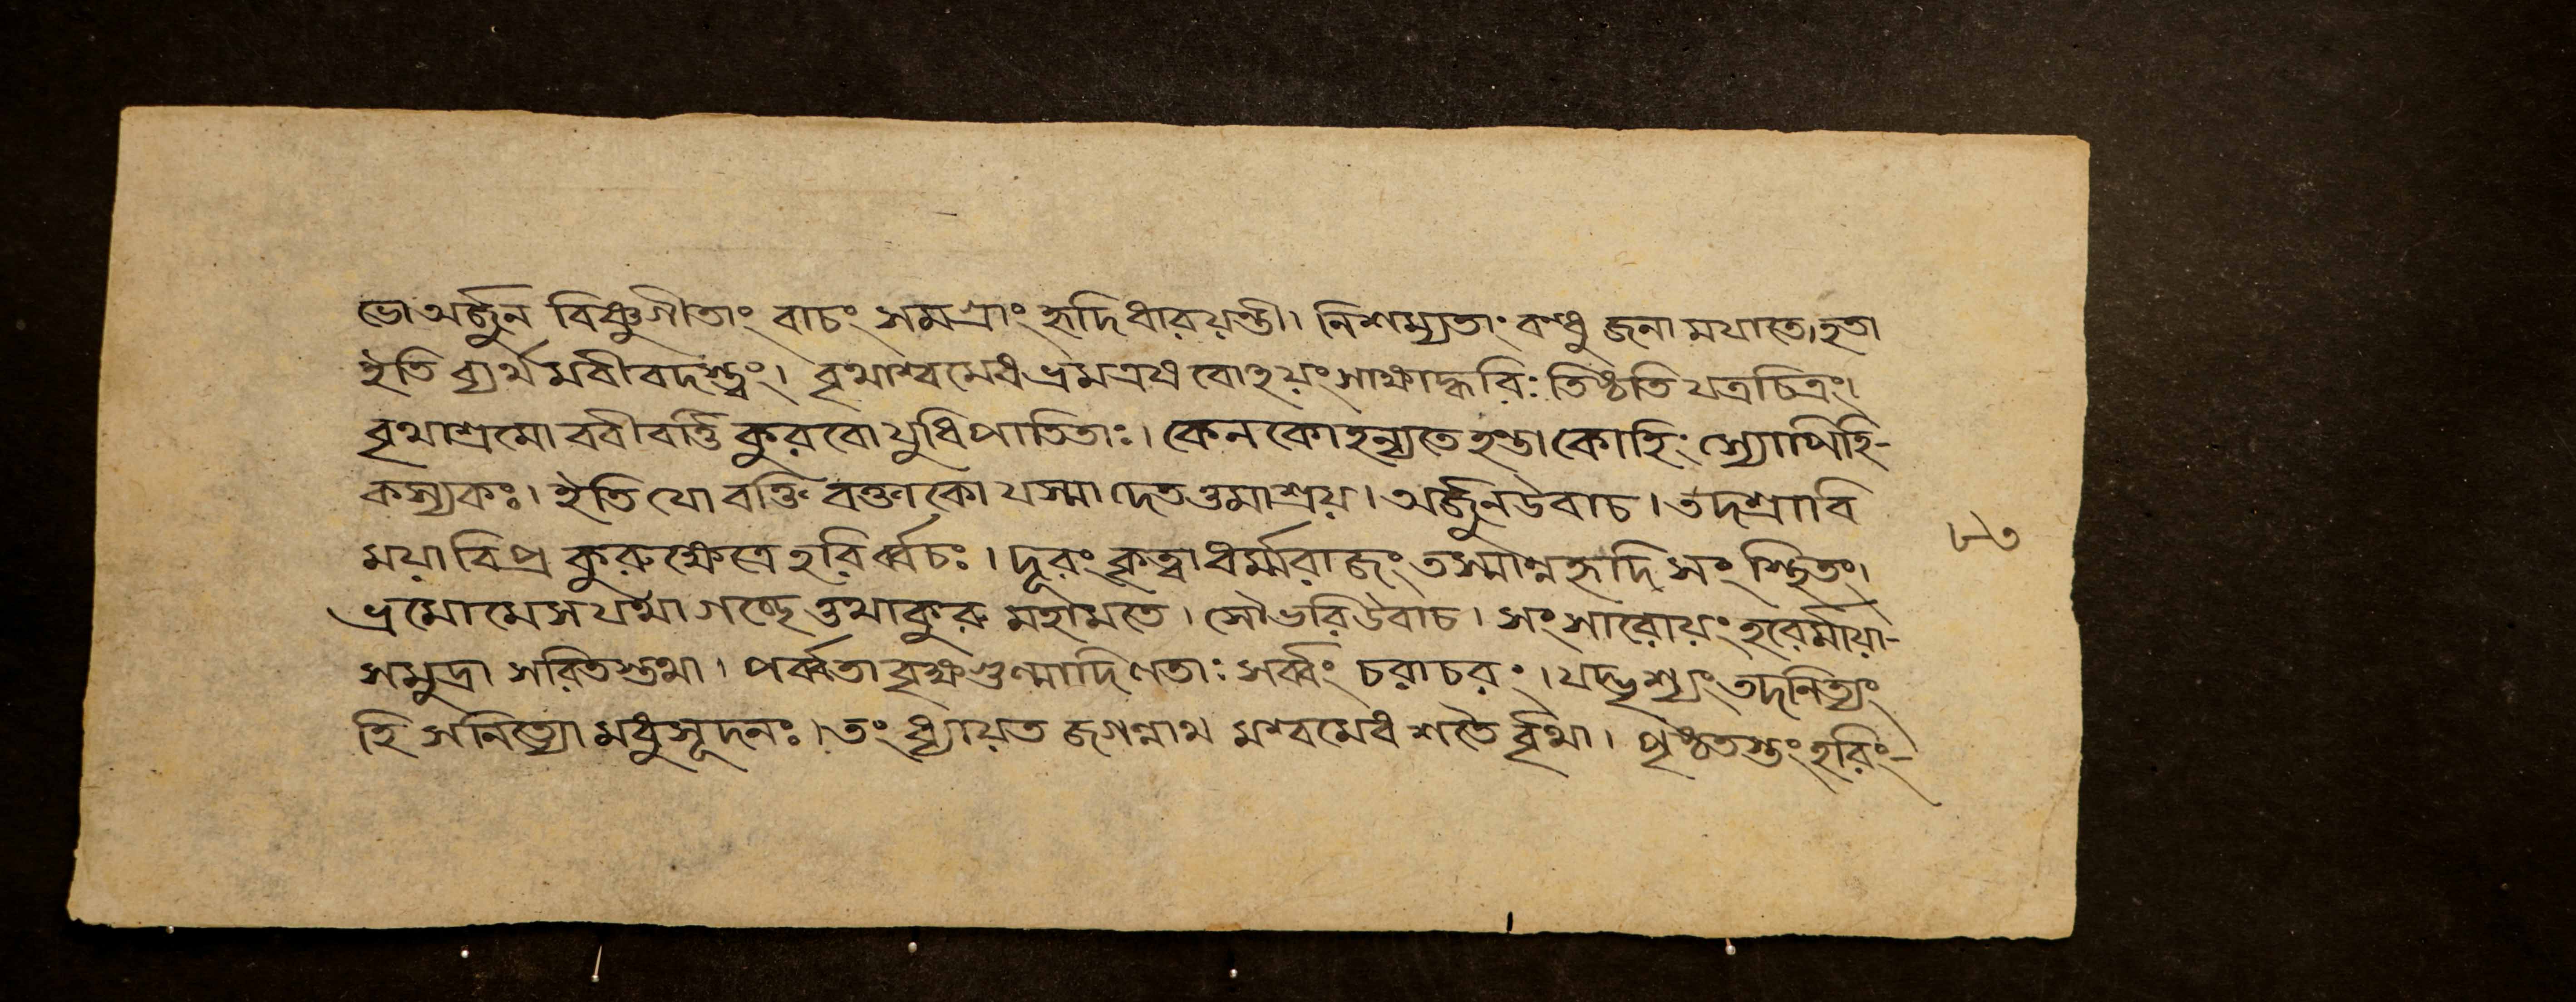 ভো অর্জ্জুন বিষ্ণুগীতাং বাচং সমগ্রাং হৃদি ধারয়ন্তী। নিশম্যতাং বন্ধু জনা ময়াস্তে হতা
ইতি ব্যর্থ মবীবদস্ত্বং। বৃথাশ্বমেধ ভ্রম এষ বোহয়ং সাক্ষাদ্ধরিঃ তিষ্ঠতি যত্র চিত্রং।
বৃথাশ্রমো ববীবর্ত্তি কুরবো যুধি পাতিতাঃ। কেন কো হন্যতে হন্তা কো হিংস্যোপি হি-
কস্যকঃ। ইতি যো বক্তি বক্তা কো যস্মা দেতত্তমাশ্রয়। অর্জ্জুন উবাচ। তদশ্রাবি
ময়া বিপ্র কুরুক্ষেত্রে হরির্ব্বচঃ। দূরং কৃত্বা ধর্ম্মরাজং তস্মান্ন হৃদি সংস্থিতং।
ভ্রমো মে স যথা গচ্ছে ত্তথা কুরু মহামতে। সৌভরি উবাচ। সংসারোয়ং হরের্মায়া-
সমুদ্রা সরিতস্তথা। পর্ব্বতা বৃক্ষগুল্মাদি লতাঃ সর্ব্বং চরাচরং। যদ্দৃশ্যং তদনিত্যং
হি স নিত্যো মধুসূদনঃ। তং ধ্যায়ত জগন্নাথ মশ্বমেধ শতৈ র্বৃথা। পৃষ্ঠতস্তং হরিং-
৮৩